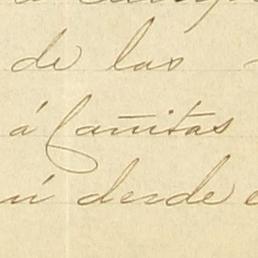 de las
á Cañitas
desde